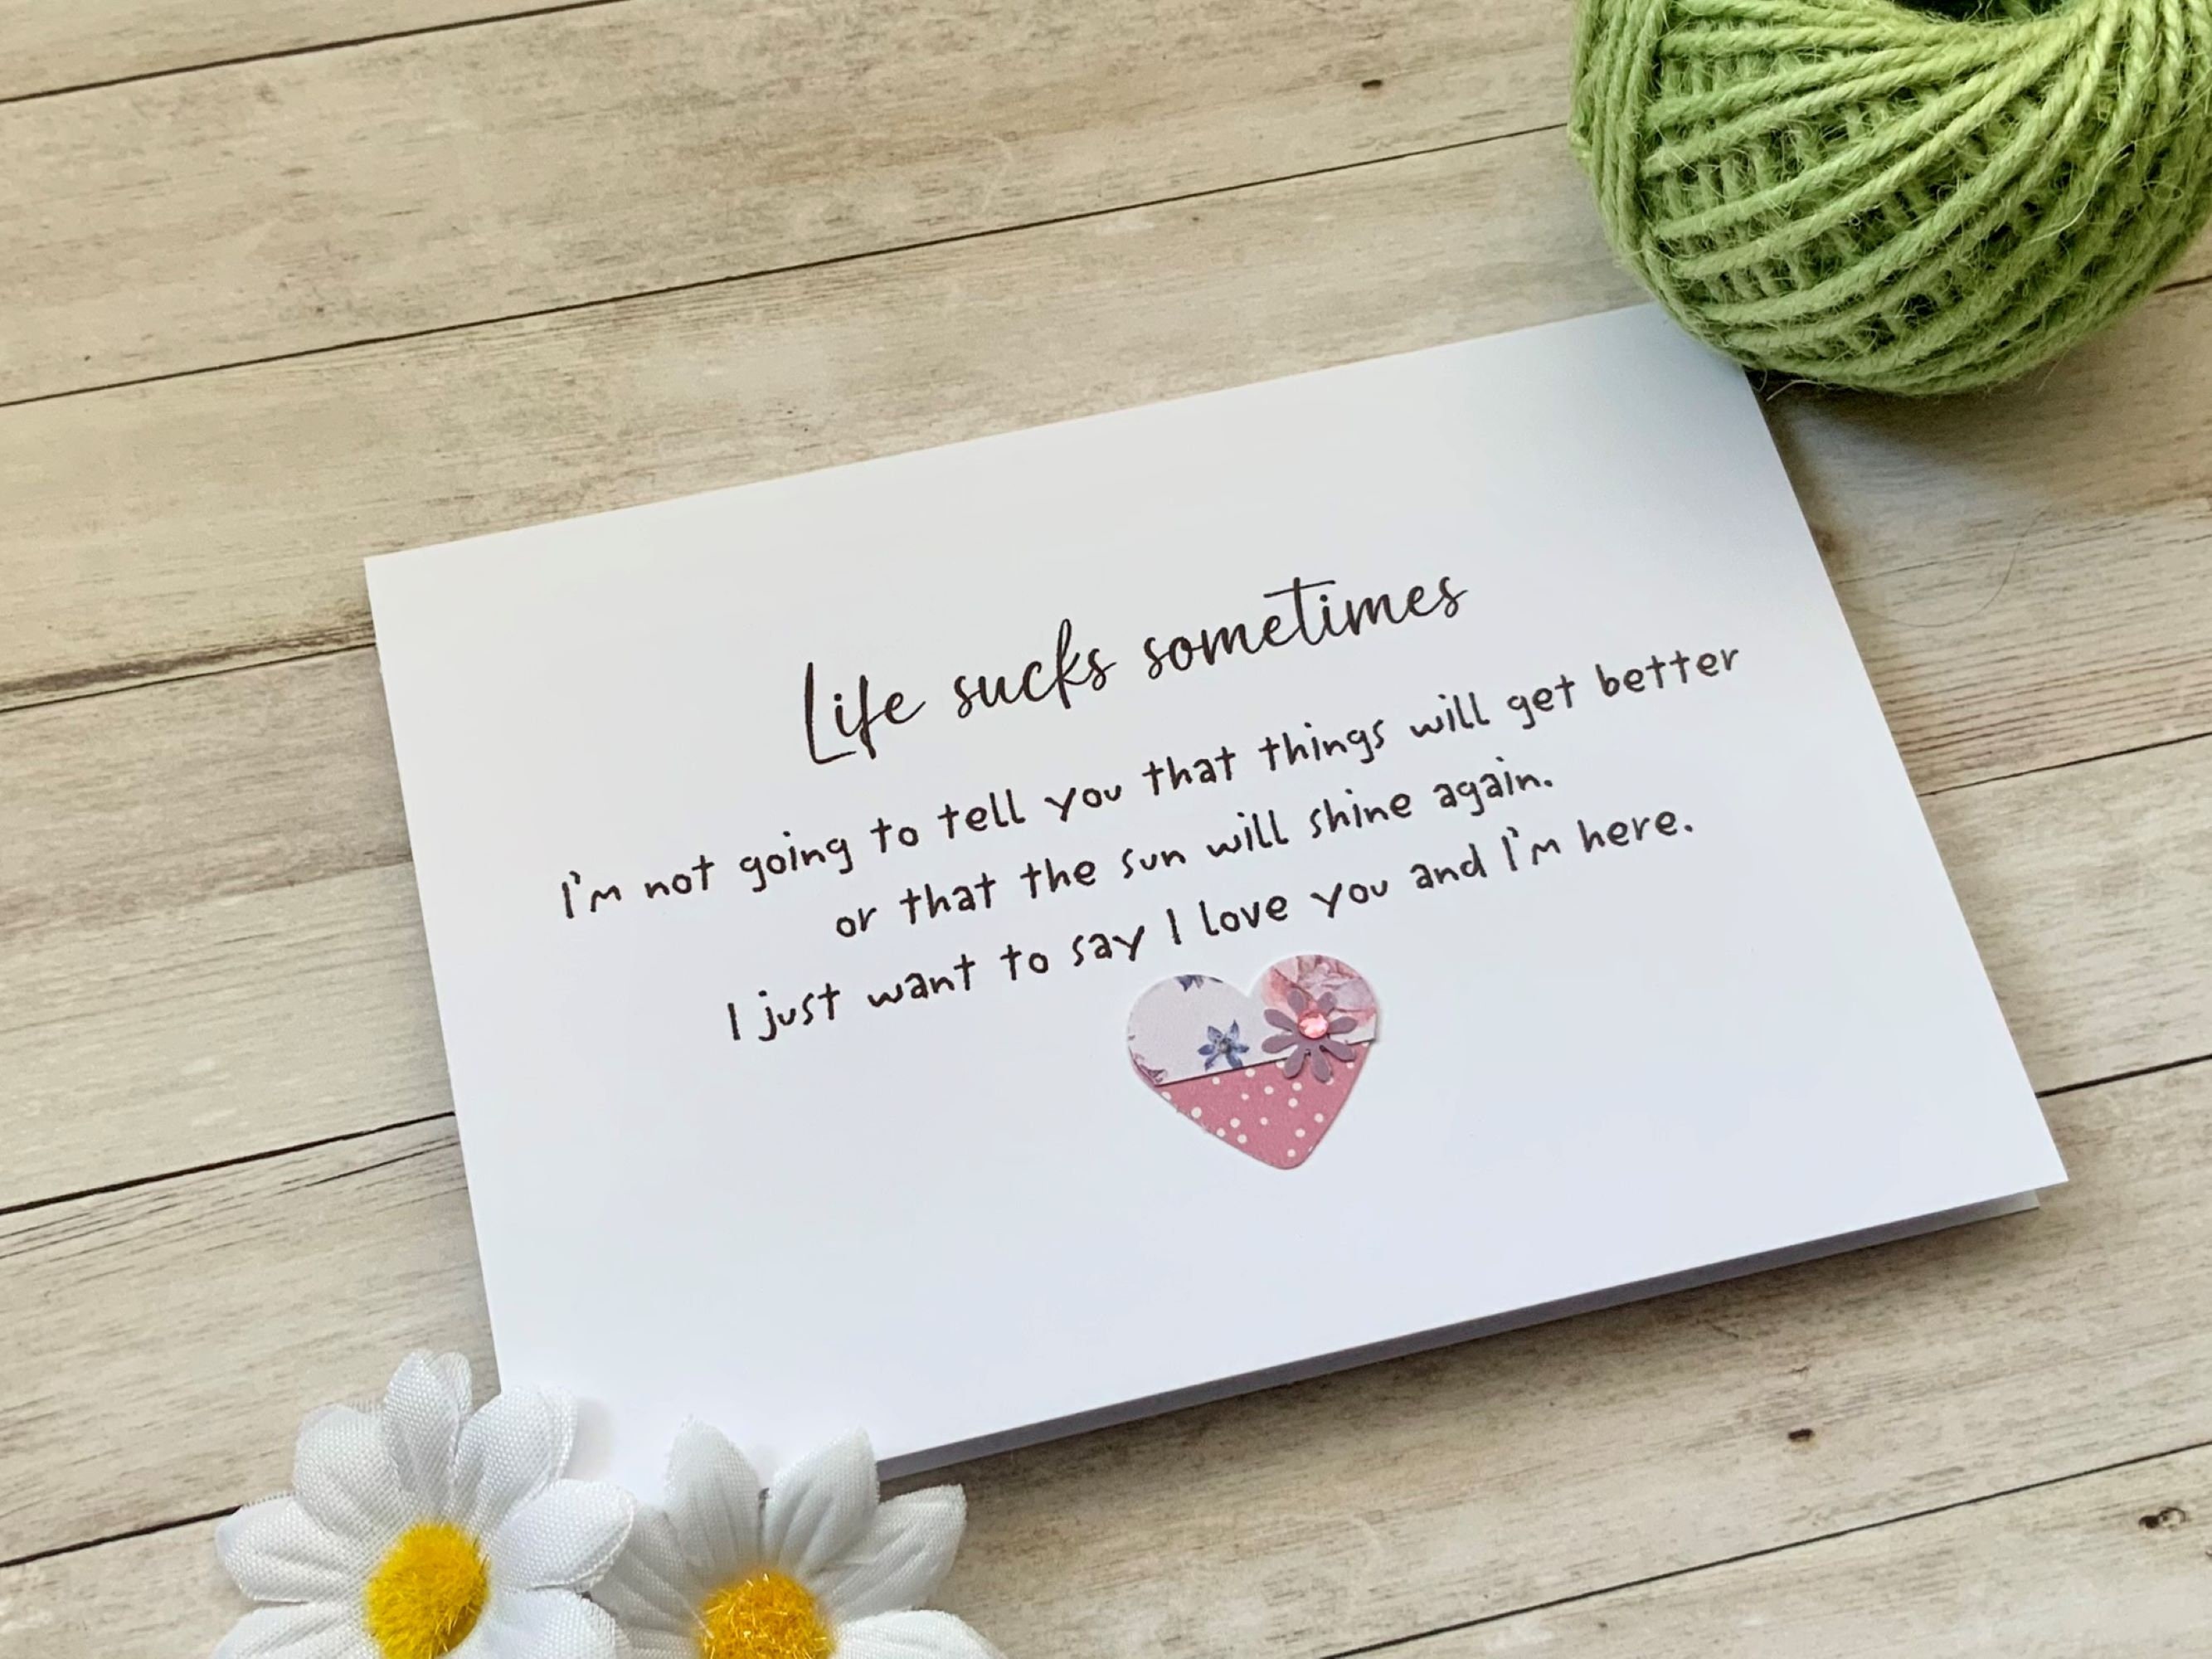 Life sucks sometimes
I'm not going to tell you that things will get better
or that the sun will shine again.
I just want to say I love you and I'm here.